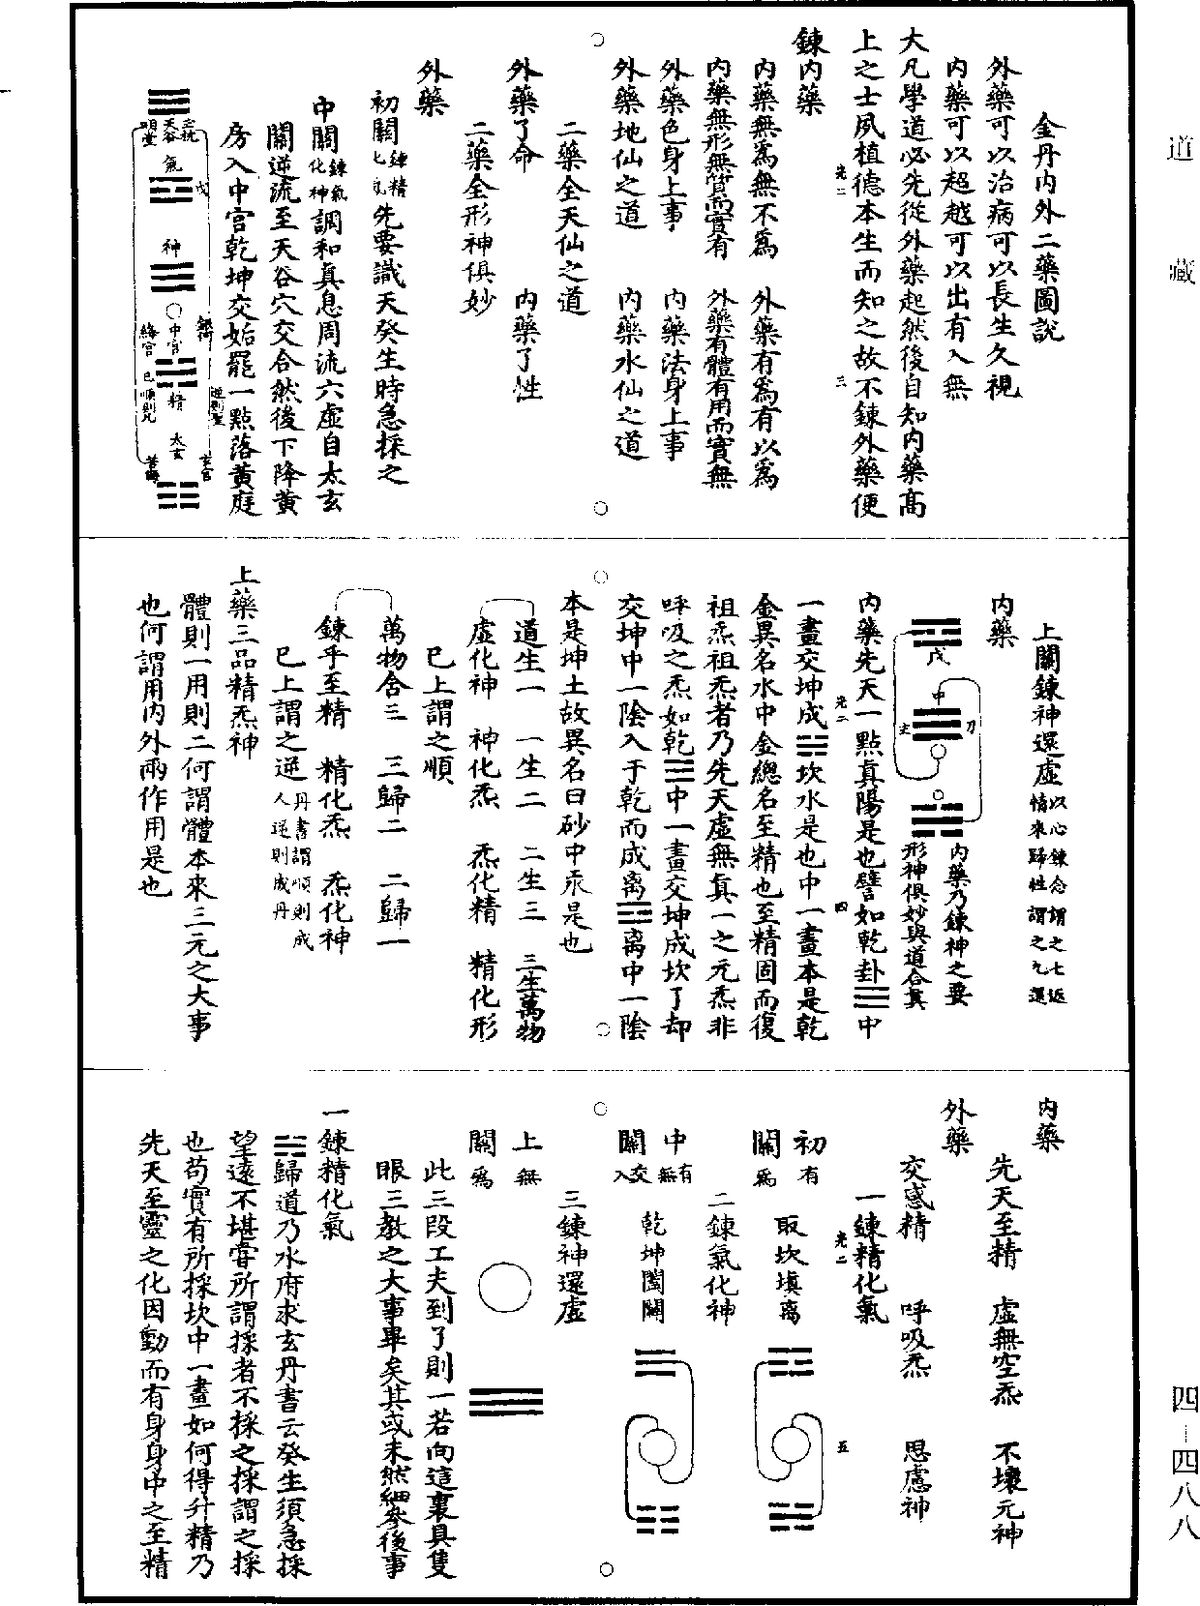 道藏
四-四八八
金丹内外二藥圖說
外藥可以治病可以長生久視
内藥可以超越可以出有入無
大凡學道必先從外藥起然後自知内藥高
上之士夙植德本生而知之故不鍊外藥便
鍊内藥
内藥無爲無不爲 外藥有爲有以爲
内藥無形無質而實有 外藥有體有用而實無
外藥色身上事 内藥法身上事
外藥地仙之道 内藥水仙之道
二藥全天仙之道
外藥了命 内藥了性
二藥全形神俱妙
外藥
初關鍊精化炁先要識天癸生時急採之
中關鍊氣化神調和真息周流六虛自太玄
關逆流至天谷穴交合然後下降黃
房入中宮乾坤交姤罷一點落黃庭
天谷
明堂
氣
戊
神
中宮
絳宮
銀河
逆則聖
己順則凡
精
太玄
苦海
上關鍊神還虛以心鍊念謂之七返
情來歸性謂之九還
内藥
戊
中
土
刀
内藥乃鍊神之要
形神俱妙與道合真
内藥先天一點真陽是也譬如乾卦☰中
一畫交坤成☵坎水是也中一畫本是乾
金異名水中金總名至精也至精固而復
祖炁祖炁者乃先天虛無真一之元炁非
呼吸之炁如乾☰中一畫交坤成坎了却
交坤中一陰入于乾而成离☲离中一陰
本是坤土故異名曰砂中汞是也
道生一 一生二 二生三 三生萬物
虛化神 神化炁 炁化精 精化形
已上謂之順
萬物含三 三歸二 二歸一
鍊乎至精 精化炁 炁化神
已上謂之逆丹書謂順則成
人逆則成丹
上藥三品精炁神
體則一用則二何謂體本來三元之大事
也何謂用内外兩作用是也
内藥
先天至精 虛無空炁 不壞元神
外藥
交感精 呼吸炁 思慮神
一鍊精化氣
初有
關爲
取坎填离
二鍊氣化神
中有無
關交入
乾坤闔闢
三鍊神還虛
上無
關爲
此三段工夫到了則一若向這裏具隻
眼三教之大事畢矣其或未然細參後事
一鍊精化氣
☵歸道乃水府求玄丹書云癸生須急採
望遠不堪嘗所謂採者不採之採謂之採
也苟實有所採坎中一畫如何得升精乃
先天至靈之化因動而有身身中之至精